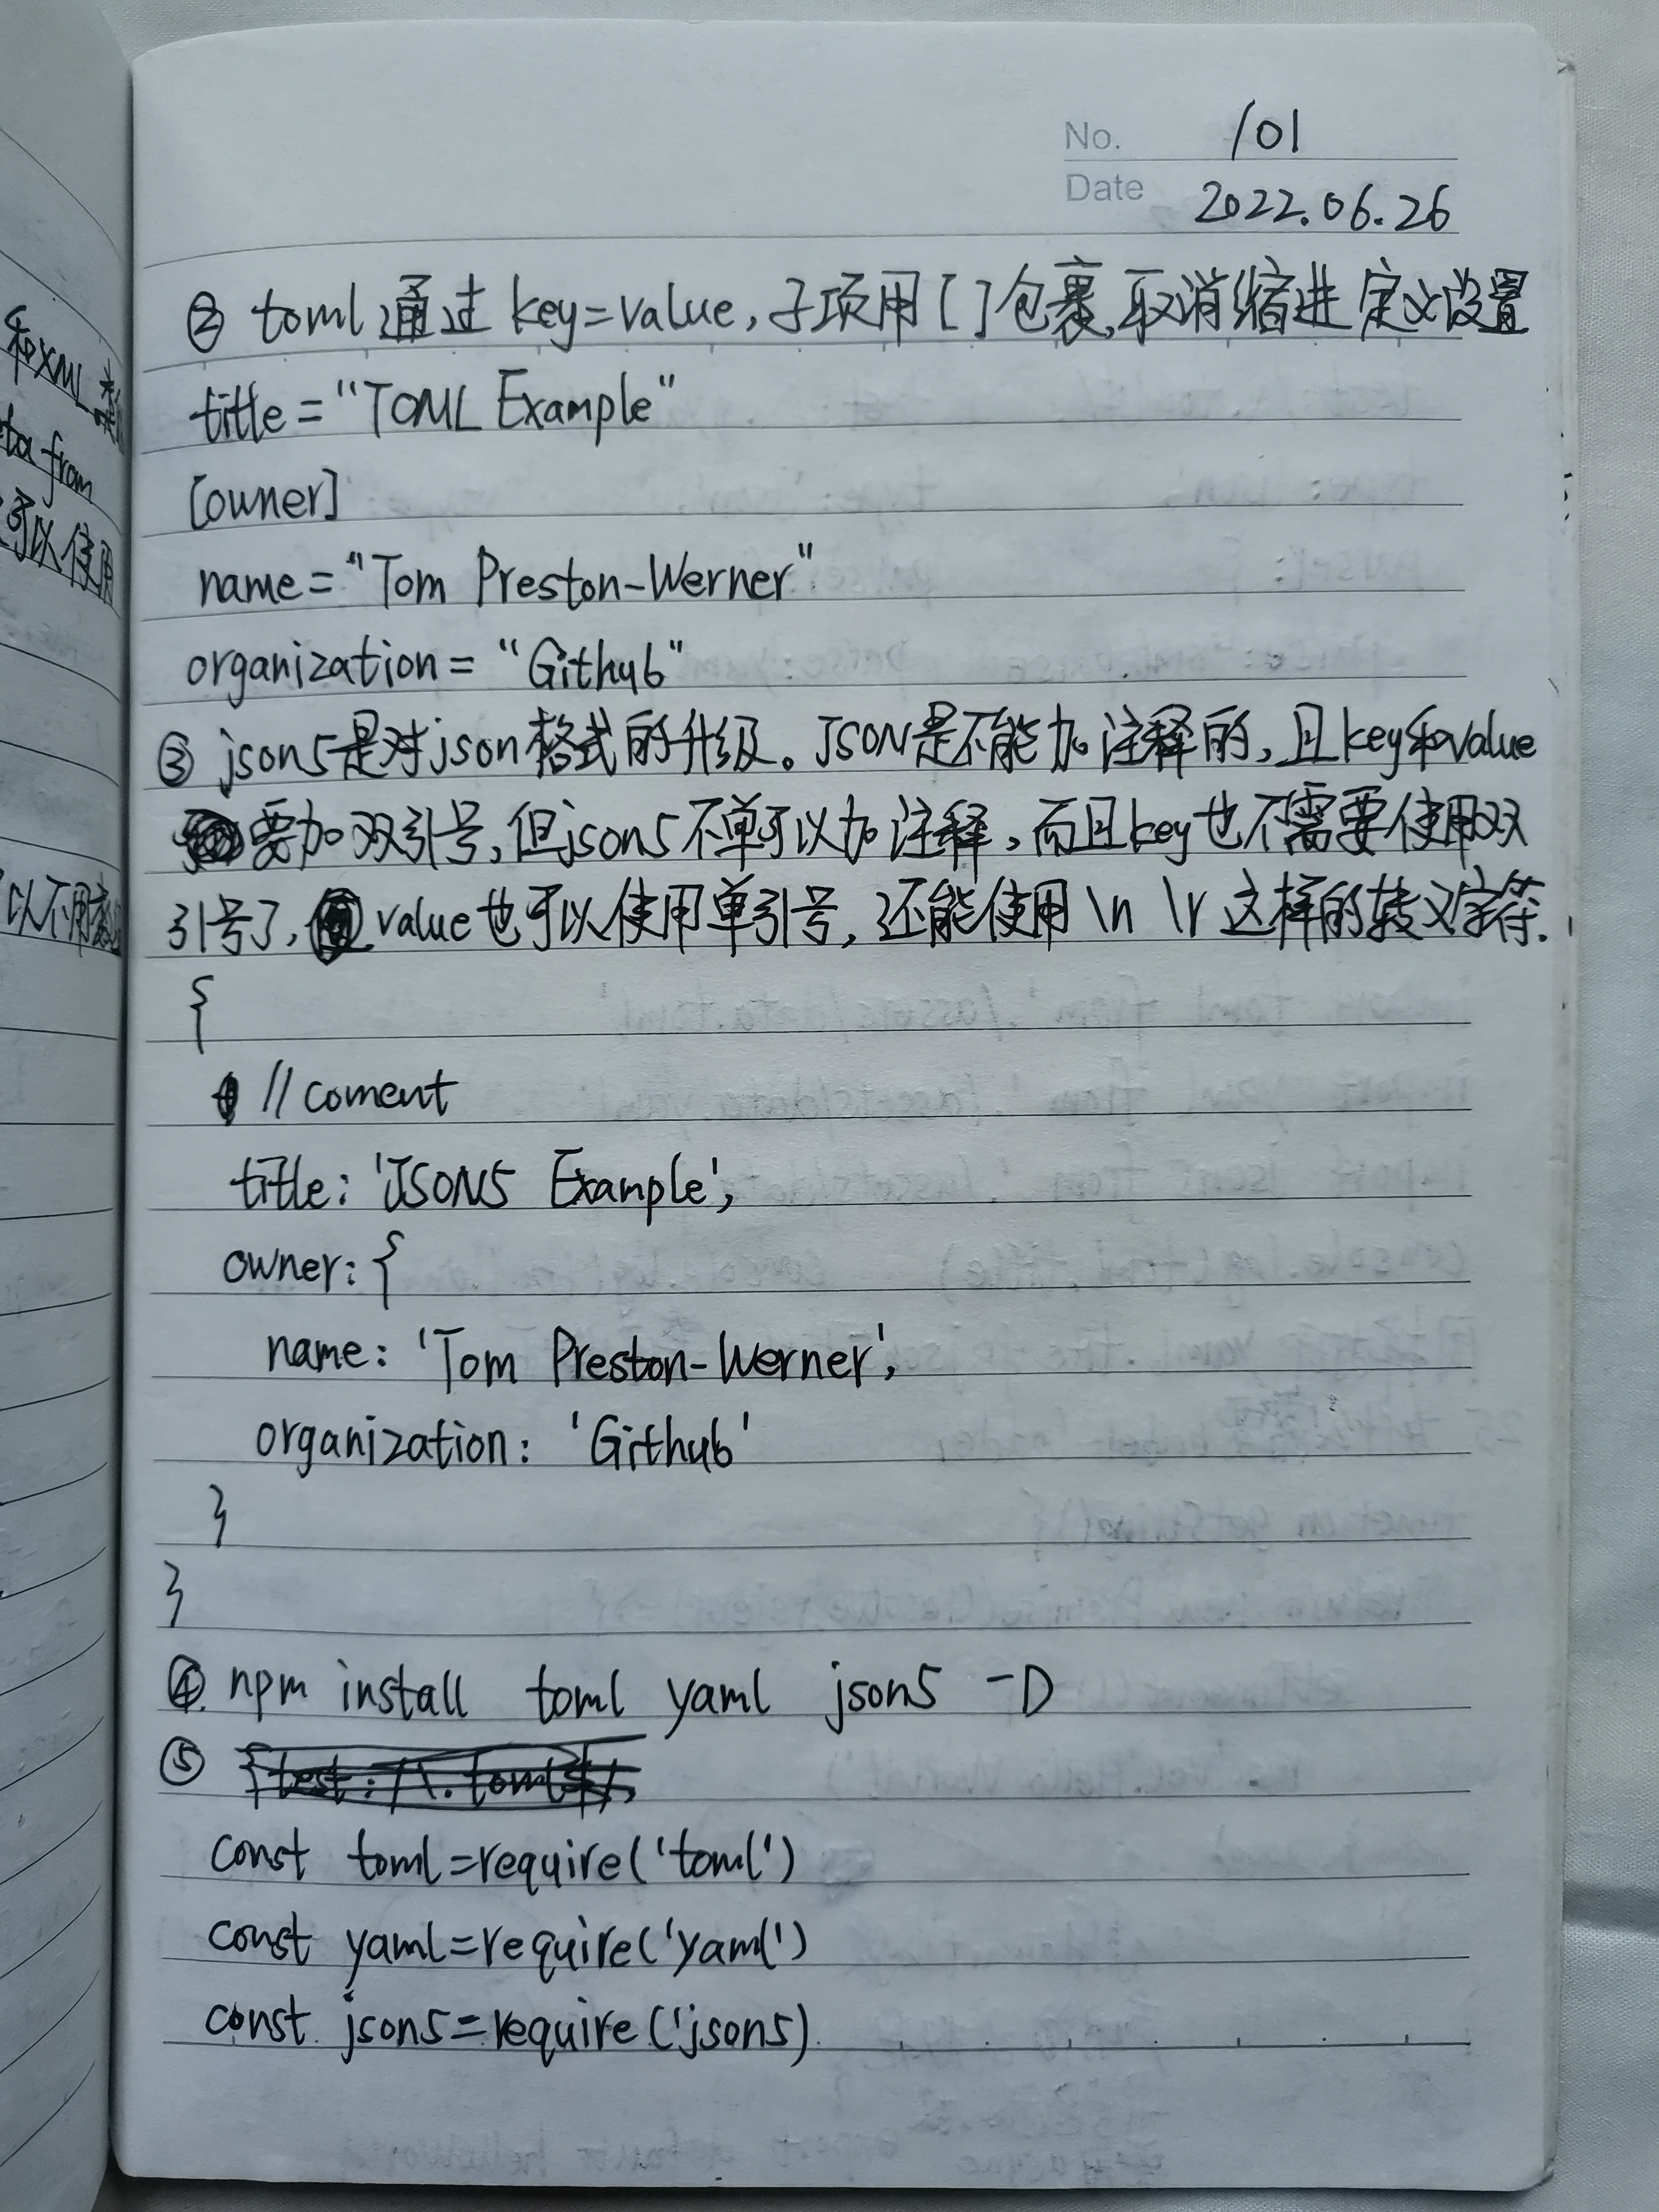 No. 101
Date 2022.06.26
② toml通过key=value,子项用[]包裹,取消缩进定义设置
title="TOML Example"
[owner]
name="Tom Preston-Werner"
organization="Github"
③ json5是对json格式的升级。JSON是不能加注释的,且key和value
要加双引号,但json5不单可以加注释,而且key也不需要使用双
引号了,value也可以使用单引号,还能使用\n \r这样的转义字符.
{
//coment
title: 'JSON5 Example',
owner: {
name: 'Tom Preston-Werner',
organization: 'Github'
}
}
④ npm install toml yaml json5 -D
⑤
const toml=require('toml')
const yaml=require('yaml')
const json5=require('json5)
和XML类
ta from
可以使用
以不用